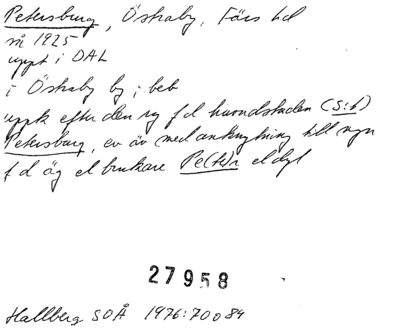 Petersburg, Östraby, Färs hd
nå 1925
uppt i DAL
i Östraby by; beb
uppk efter den ry f d huvudstaden (S:t)
Petersburg, ev äv med anknytning till ngn
f d äg el brukare Pe(te)r el dyl
27958
Hallberg SOÅ 1976:70084